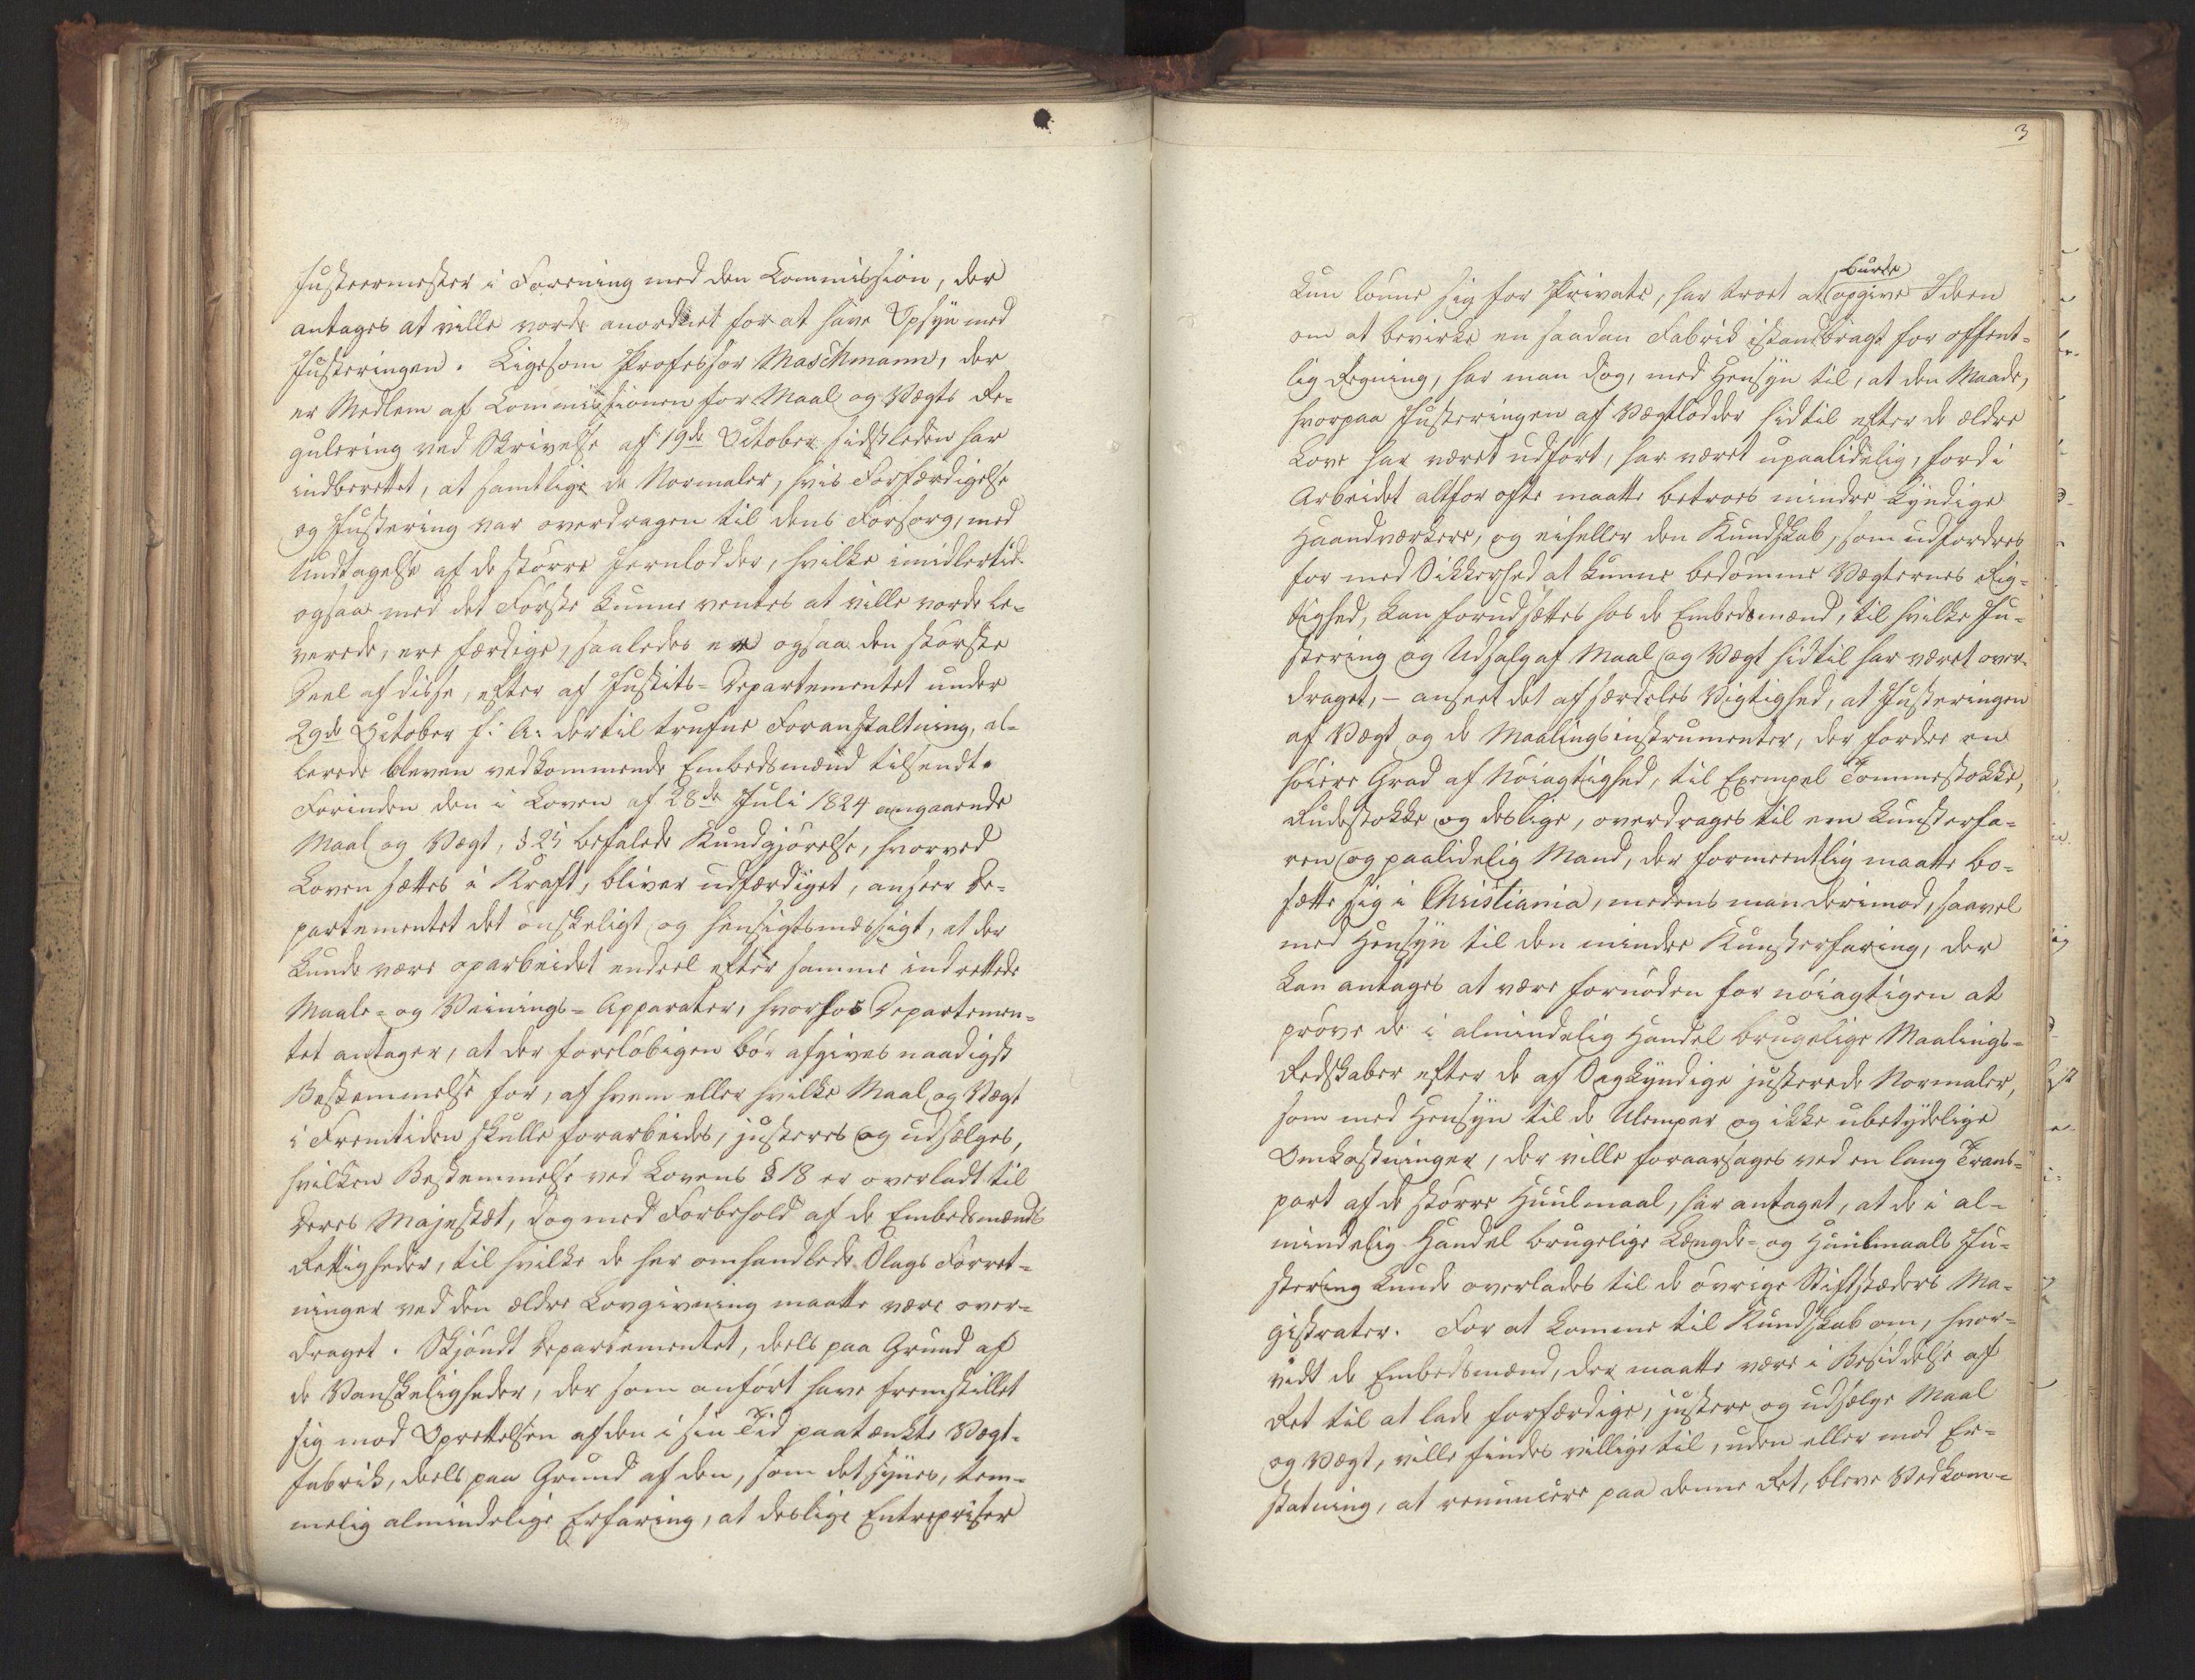 Justeermester i Forening med den Commission, der
antages at ville vorde anordnet for at have Opsyn med
Justeringen. Ligesom Professor Maschmann, der
er Medlem af Commissionen for Maal og Vægts Re-
gulering ved Skrivelse af 19de October sidstleden har
indberettet, at samtlige de Normaler, hvis Forfærdigelse
og Justering var overdragen til dens Forsorg, med
Undtagelse af de större Jernlodder, hvilke imidlertid
ogsaa med det Förste kunne ventes at ville vorde le-
verede, ere færdige, saaledes er ogsaa den störste
Deel af disse, efter af Justits-Departementet under
29de October f: A: dertil trufne Foranstaltning, al-
lerede bleven vedkommende Embedsmænd tilsendt.
Forinden den i Loven af 28de Juli 1824 angaaende
Maal og Vægt, § 25 befalede Kundgjörelse, hvorved
Loven sættes i Kraft, bliver udfærdiget, anseer De-
partementet det önskeligt og hensigtsmæssigt, at der
kunde være oparbeidet endeel efter samme indrettede
Maale- og Veinings-Apparater, hvorfor Departemen-
tet antager, at der forelöbigen bör afgives naadigst
Bestemmelse for, af hvem eller hvilke Maal og Vægt
i Fremtiden skulle forarbeides, justeres og udsælges,
hvilken Bestemmelse ved Lovens § 18 er overladt til
Deres Majestæt, dog med Forbehold af de Embedsmænds
Rettigheder, til hvilke de her omhandlede Slags Forret-
ninger ved den ældre Lovgivning maatte være over-
draget. Skjöndt Departementet, deels paa Grund af
de Vanskeligheder, der som anfört have fremstillet
sig mod Oprettelsen af den i sin Tid paatænkte Vægt-
fabrik, deels paa Grund af den, som det synes, tem-
melig almindelige Erfaring, at deslige Entrepriser
3
burde
kun lönne sig for Private, har troet at opgive Ideen
om at bevirke en saadan Fabrik istandbragt for offent-
lig Regning, har man dog, med Hensyn til, at den Maade,
hvorpaa Justeringen af Vægtlodder hidtil efter de ældre
Love har været udfört, har været upaalidelig, fordi
Arbeidet altfor ofte maatte betroes mindre kyndige
Haandværkere, og eiheller den Kundskab, som udfordres
for med Sikkerhed at kunne bedömme Vægternes Rig-
tighed, kan forudsættes hos de Embedsmænd, til hvilke Ju-
stering og Udsalg af Maal og Vægt hidtil har været over-
draget, – anseet det af særdeles Vigtighed, at Justeringen
af Vægt og de Maalingsinstrumenter, der fordre en
höiere Grad af Nöiagtighed, til Exempel Tommestokke,
Rudestokke og deslige, overdrages til een kunsterfa-
ren og paalidelig Mand, der formeentlig maatte bo-
sætte sig i Christiania, medens man derimod, saavel
med Hensyn til den mindre Kunsterfaring, der
kan antages at være fornöden for nöiagtigen at
pröve de i almindelig Handel brugelige Maalings-
Redskaber efter de af Sagkyndige justerede Normaler,
som med Hensyn til de Ulemper og ikke ubetydelige
Omkostninger, der ville foraarsages ved en lang Trans-
port af de större Huulmaal, har antaget, at de i al-
mindelig Handel brugelige Længde- og Huulmaals Ju-
stering kunde overlades til de övrige Stiftstæders Ma-
gistrater. For at komme til Kundskab om, hvor-
vidt de Embedsmænd, der maatte være i Besiddelse af
Ret til at lade forfærdige, justere og udsælge Maal
og Vægt, ville findes villige til, uden eller mod Er-
statning, at renuncere paa denne Ret, bleve Vedkom-